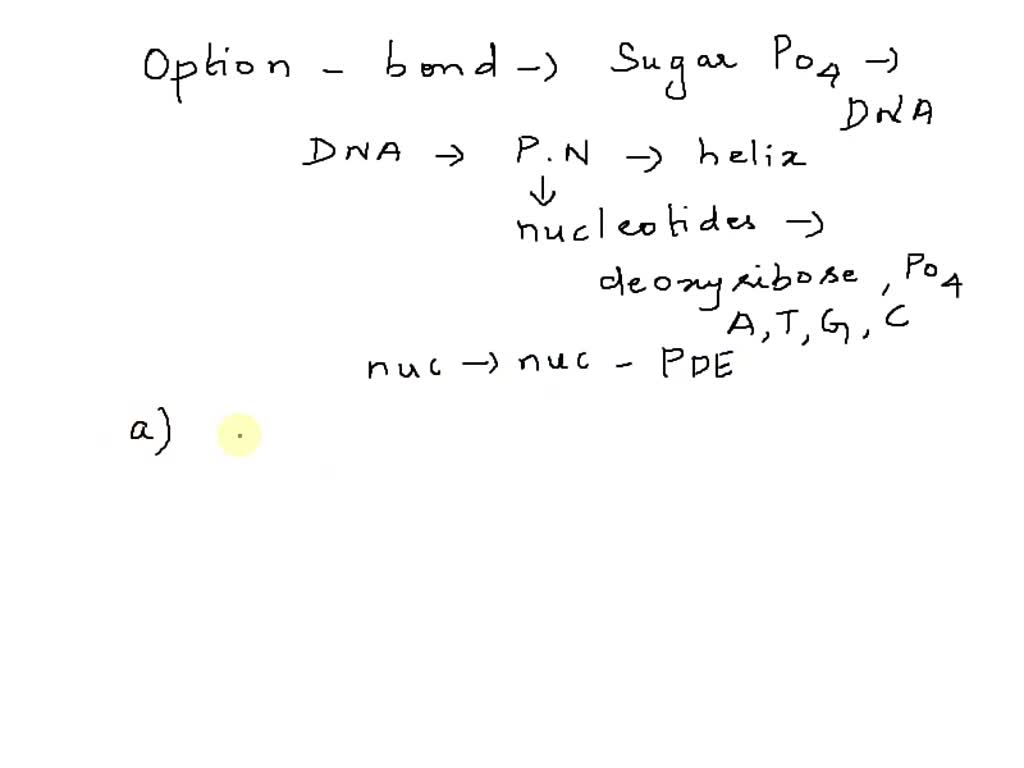 Option - bond → Sugar PO4 →
DNA
DNA → P.N → helix
↓
nucleotides →
deoxyribose, PO4
A, T, G, C
nuc → nuc - PDE
a)